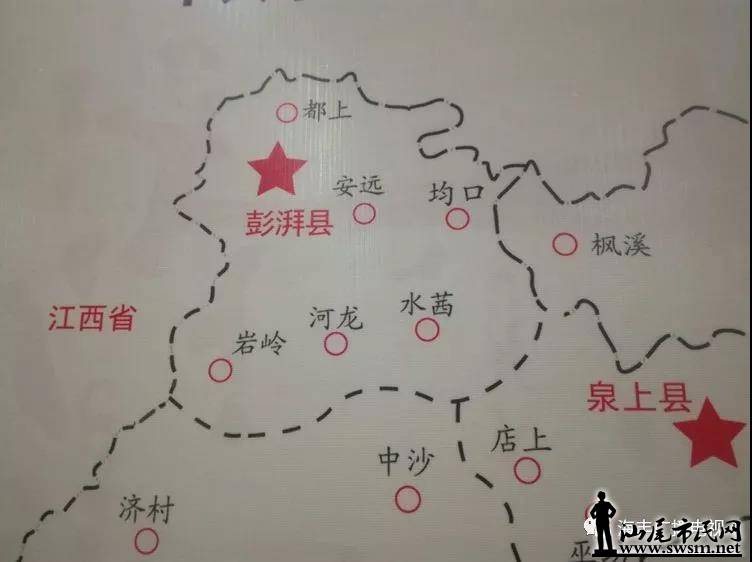 都上
安远
均口
彭湃县
枫溪
江西省
岩岭
河龙
水茜
泉上县
店上
中沙
济村
汕尾市民网
www.swsm.net